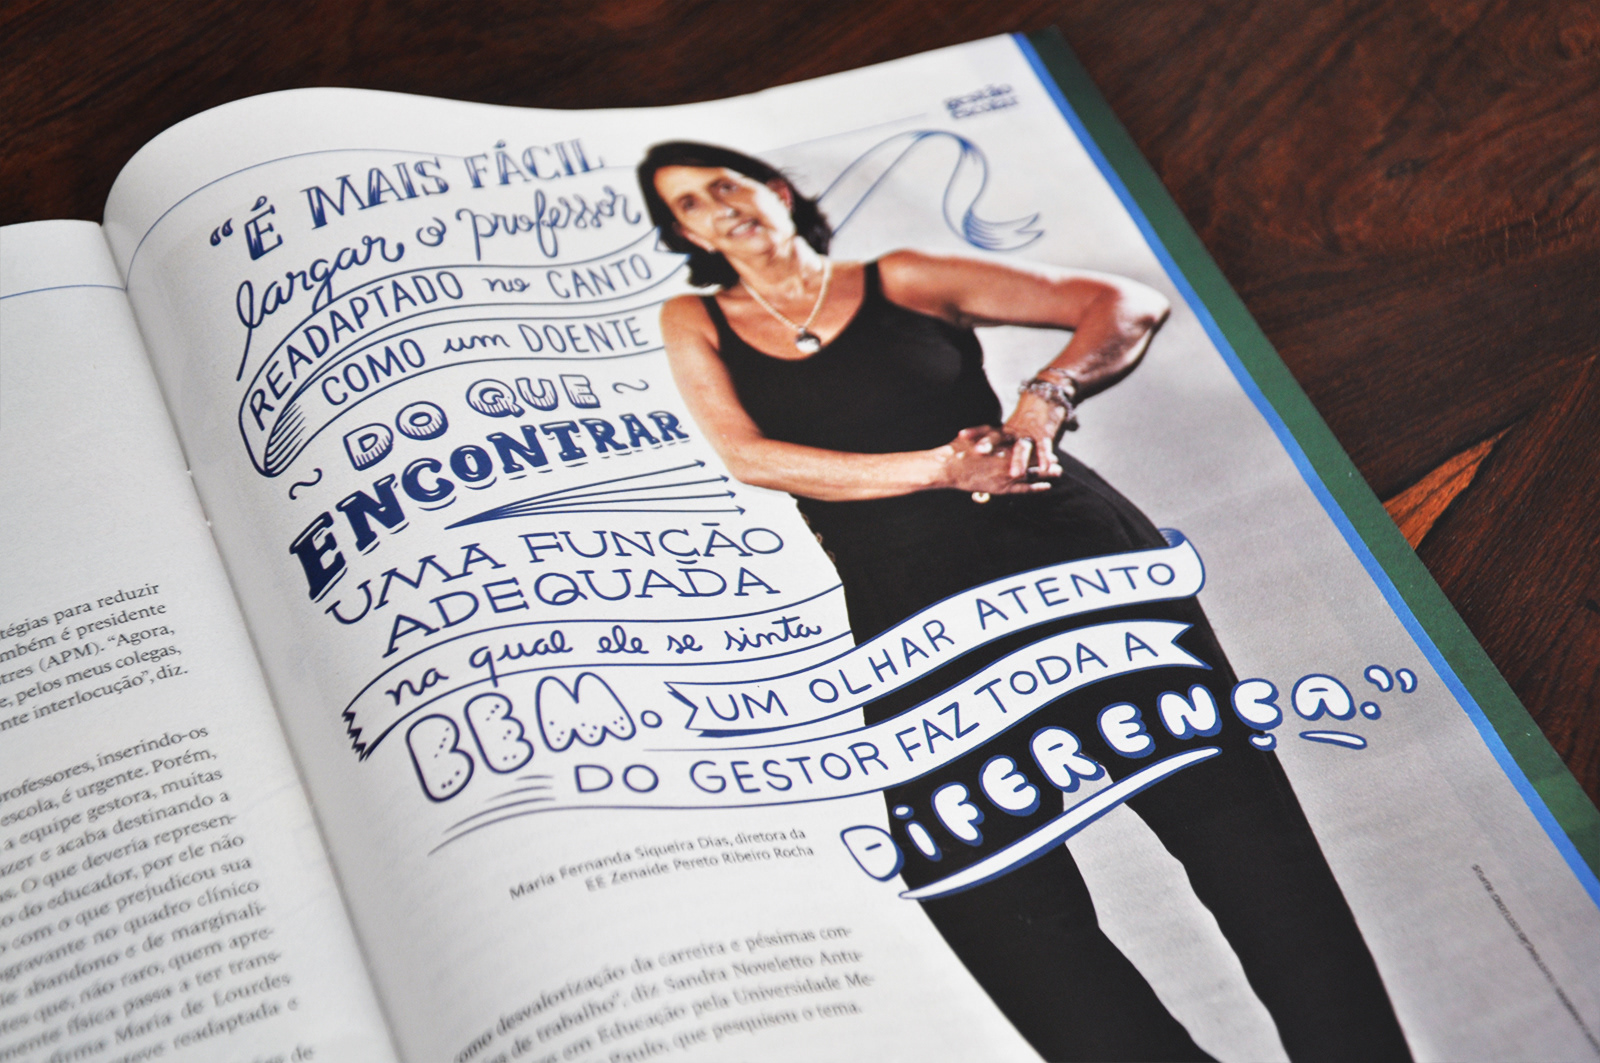 tégias para reduzir
mbém é presidente
tres (APM). "Agora,
e, pelos meus colegas,
nte interlocução", diz.
rofessores, inserindo-os
escola, é urgente. Porém,
a equipe gestora, muitas
azer e acaba destinando a
as. O que deveria represen-
o do educador, por ele não
o com o que prejudicou sua
agravante no quadro clínico
e abandono e de marginali-
tes que, não raro, quem apre-
mente física passa a ter trans-
firma Maria de Lourdes
esteve readaptada e
gestão
escolar
"É MAIS FÁCIL
largar o professor
READAPTADO no CANTO
COMO um DOENTE
~ DO QUE ~
ENCONTRAR
UMA FUNÇÃO
ADEQUADA
na qual ele se sinta
BEM. UM OLHAR ATENTO
DO GESTOR FAZ TODA A
DIFERENÇA."
Maria Fernanda Siqueira Dias, diretora da
EE Zenaide Pereto Ribeiro Rocha
como desvalorização da carreira e péssimas con-
de trabalho", diz Sandra Noveletto Antu-
em Educação pela Universidade Me-
Paulo, que pesquisou o tema.